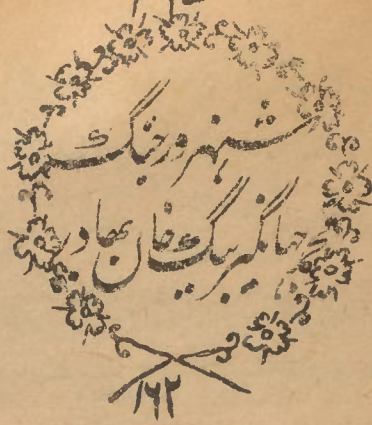 شہزور جنگ
جہانگیر بیگ خان بھادر
۱۶۲